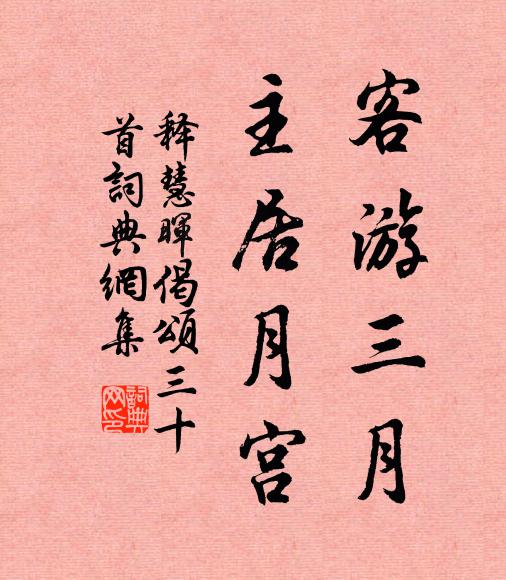 客游三月
主居月宫
释慧晖偈颂三十
首詞典網集
詞典
网印